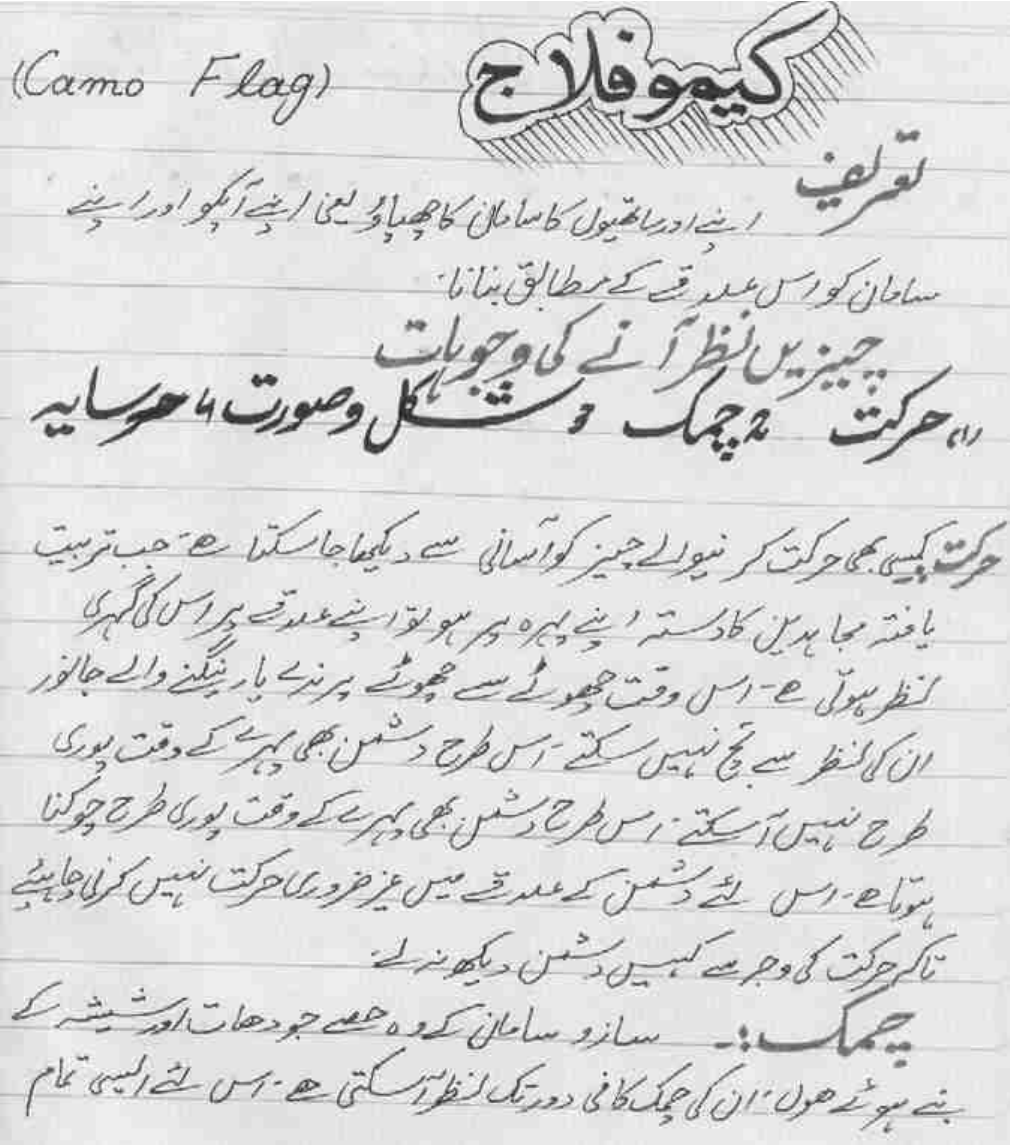 کیموفلاج (Camo Flag)
تعریف
اپنے اور ساتھیوں کا سامان کا چھپاؤ یعنی اپنے آپکو اور اپنے
سامان کو اس علاقے کے مطابق بنانا۔
چیزیں نظر آنے کی وجوہات
(۱) حرکت 2 چمک 3 شکل و صورت 4 سایہ
حرکت کیسی بھی حرکت کر نیوالے چیز کو آسانی سے دیکھا جا سکتا ہے۔ جب تربیت
یافتہ مجاہدین کا دستہ اپنے پہرہ پر ہو تو اپنے علاقے پر اس کی گہری
نظر ہوتی ہے۔ اس وقت چھوٹے سے چھوٹے پرندے یا رینگنے والے جانور
ان کی نظر سے بچ نہیں سکتے۔ اس طرح دشمن بھی پہرے کے وقت پوری
طرح نہیں آسکتے۔ اس طرح دشمن بھی پہرے کے وقت پوری طرح چوکنا
ہوتا ہے۔ اس لئے دشمن کے علاقے میں غیر ضروری حرکت نہیں کرنی چاہیئے
تاکہ حرکت کی وجہ سے کہیں دشمن دیکھ نہ لے۔
چمک :۔ سازو سامان کے وہ حصے جو دھات اور شیشہ کے
بنے ہوئے ھوں، ان کی چمک کافی دور تک نظر آسکتی ہے۔ اس لئے ایسی تمام